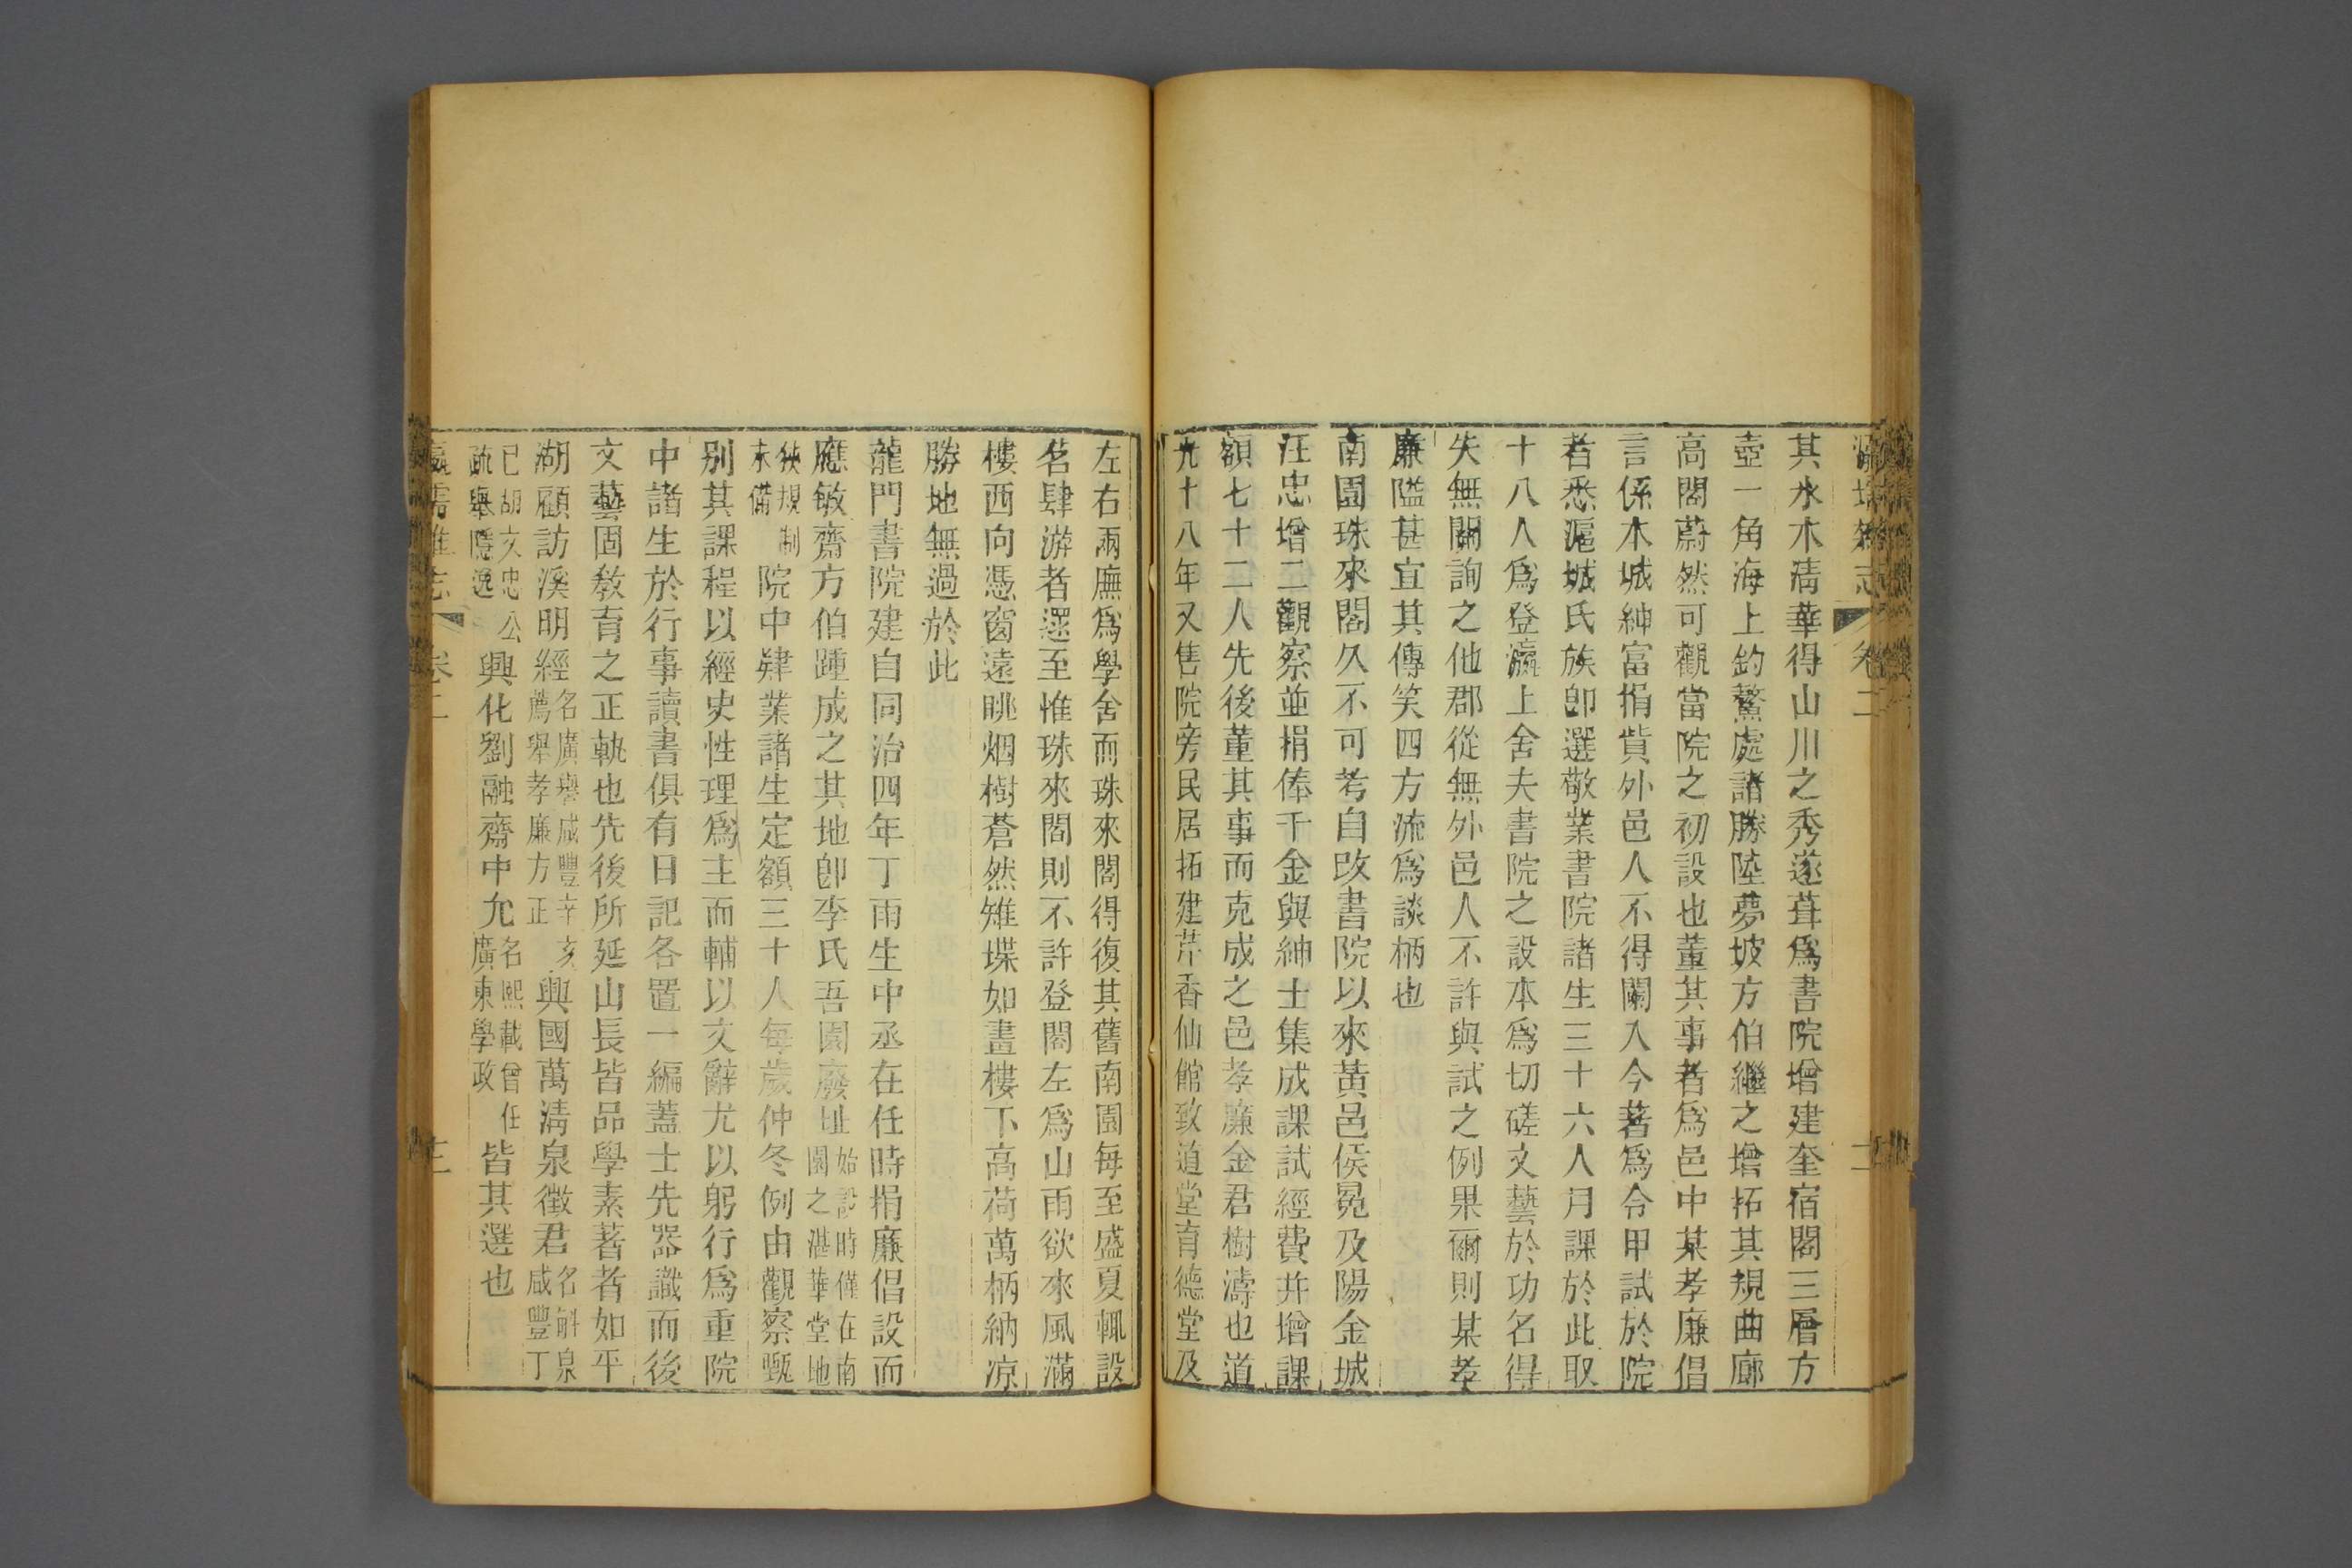 其水木淸華得山川之秀遂葺爲書院增建奎宿閣三層方
壺一角海上釣鰲處諸勝陸夢坡方伯繼之增拓其規曲廊
高閣蔚然可觀當院之初設也董其事者爲邑中某孝廉倡
言係本城紳富捐貲外邑人不得闌入今著爲令甲試於院
者悉滬城氏族卽選敬業書院諸生三十六人月課於此取
十八人爲登瀛上舍夫書院之設本爲切磋文藝於功名得
失無關詢之他郡從無外邑人不許與試之例果爾則某孝
廉隘甚宜其傳笑四方流爲談柄也
南園珠來閣久不可考自改書院以來黃邑侯冕及陽金城
汪忠增二觀察並捐俸千金與紳士集成課試經費并增課
額七十二人先後董其事而克成之邑孝廉金君樹濤也道
光十八年又售院旁民居拓建芹香仙館致道堂育德堂及
左右兩廡爲學舍而珠來閣得復其舊南園每至盛夏輒設
茗肆游者遝至惟珠來閣則不許登閣左爲山雨欲來風滿
樓西向憑窗遠眺烟樹蒼然雉堞如畫樓下高荷萬柄納凉
勝地無過於此
龍門書院建自同治四年丁雨生中丞在任時捐廉倡設而
應敏齋方伯踵成之其地卽李氏吾園廢址始設時僅在南園之湛華堂地
狹規制未備院中肄業諸生定額三十人每歲仲冬例由觀察甄
别其課程以經史性理爲主而輔以文辭尤以躬行爲重院
中諸生於行事讀書俱有日記各置一編蓋士先器識而後
文藝固敎育之正軌也先後所延山長皆品學素著者如平
湖顧訪溪明經名廣譽咸豐辛亥薦舉孝廉方正興國萬淸泉徵君名斛泉咸豐丁
巳胡文忠公疏舉隱逸興化劉融齋中允名熙載曾任廣東學政皆其選也
瀛壖雜志 卷二